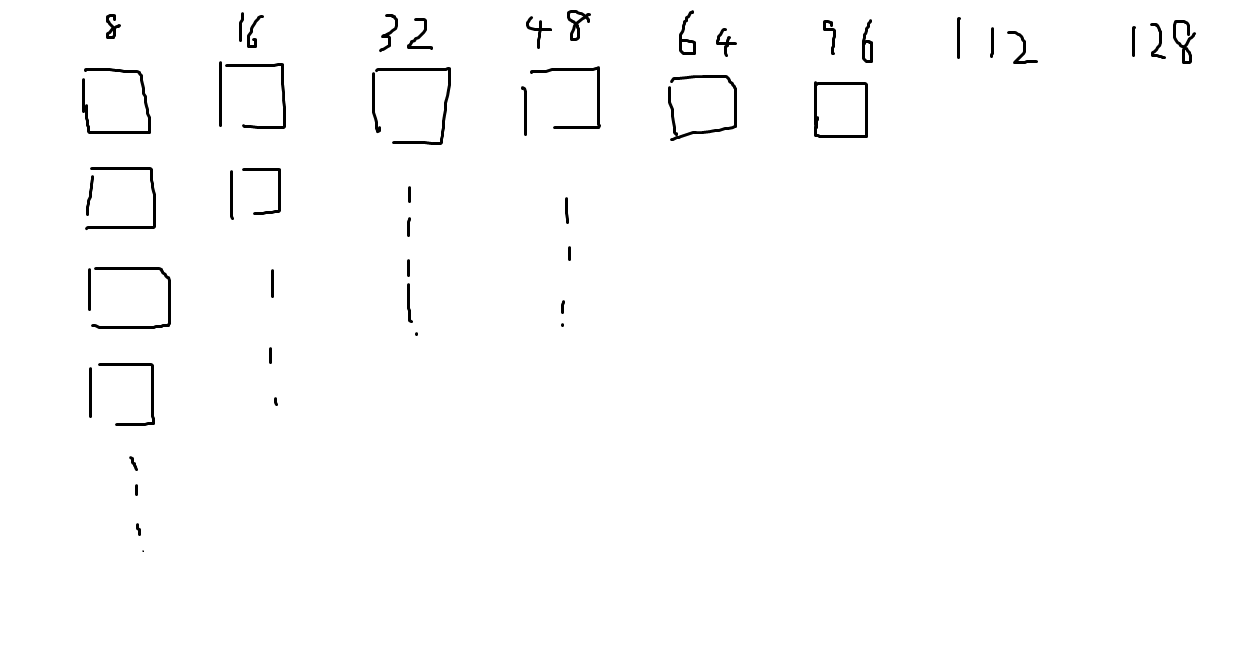 8 16 32 48 64 96 112 128